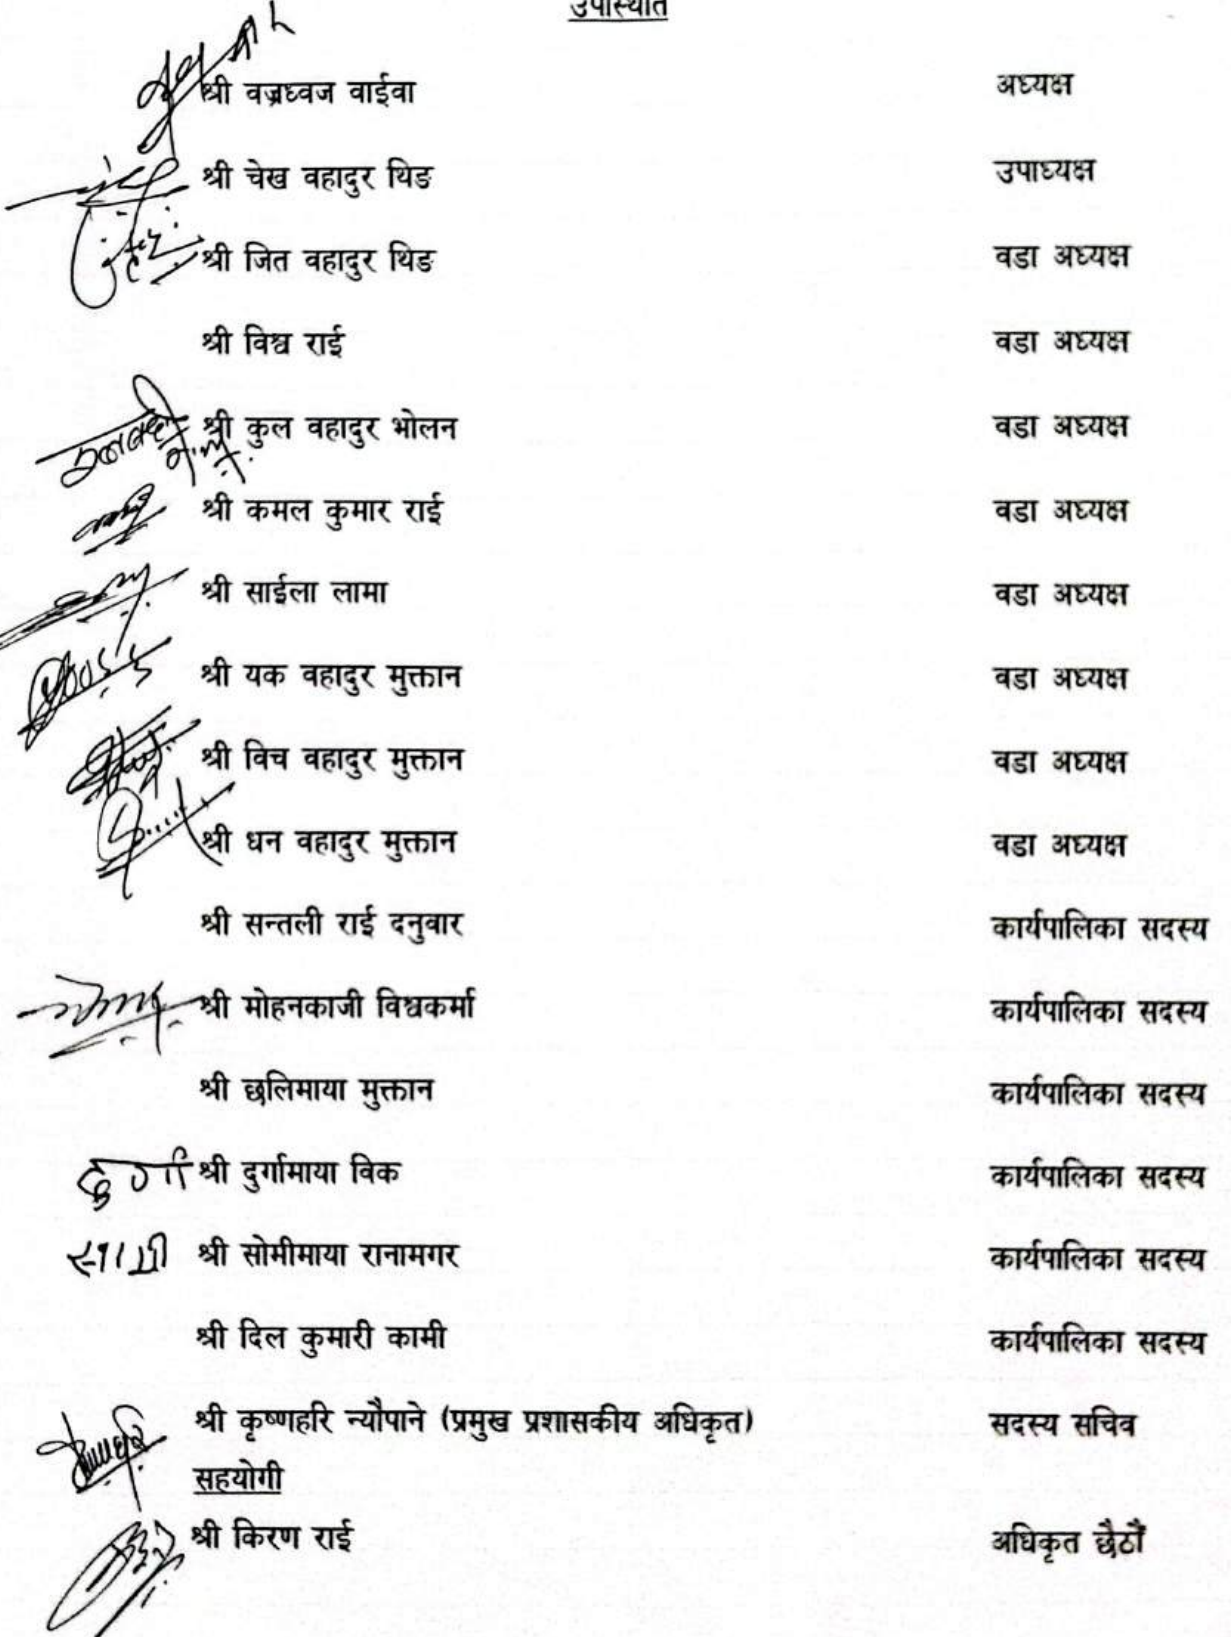 उपस्थिति
श्री वज्रध्वज वाईवा अध्यक्ष
श्री चेख वहादुर थिङ उपाध्यक्ष
श्री जित वहादुर थिङ वडा अध्यक्ष
श्री विश्व राई वडा अध्यक्ष
श्री कुल वहादुर भोलन वडा अध्यक्ष
श्री कमल कुमार राई वडा अध्यक्ष
श्री साईला लामा वडा अध्यक्ष
श्री यक वहादुर मुक्तान वडा अध्यक्ष
श्री विच वहादुर मुक्तान वडा अध्यक्ष
श्री धन वहादुर मुक्तान वडा अध्यक्ष
श्री सन्तली राई दनुवार कार्यपालिका सदस्य
श्री मोहनकाजी विश्वकर्मा कार्यपालिका सदस्य
श्री छलिमाया मुक्तान कार्यपालिका सदस्य
दुर्गा श्री दुर्गामाया विक कार्यपालिका सदस्य
श्री सोमीमाया रानामगर कार्यपालिका सदस्य
श्री दिल कुमारी कामी कार्यपालिका सदस्य
श्री कृष्णहरि न्यौपाने (प्रमुख प्रशासकीय अधिकृत) सदस्य सचिव
सहयोगी
श्री किरण राई अधिकृत छैठौं